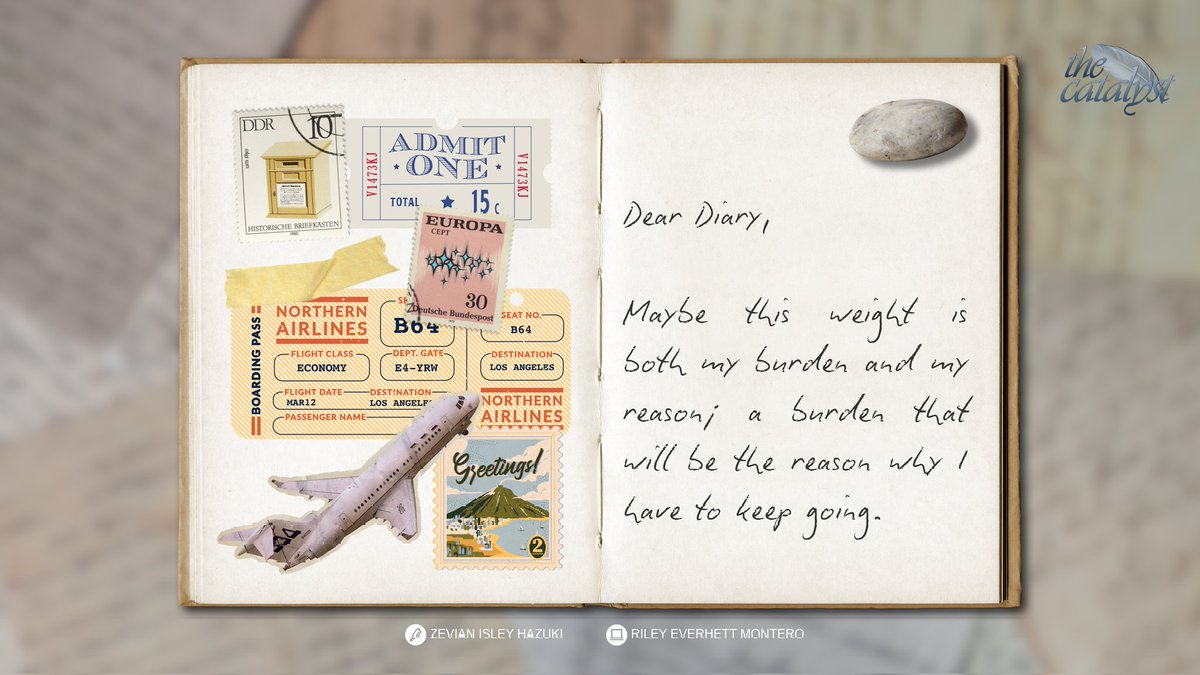 the catalyst
DDR
10
HISTORISCHE BRIEFKÄSTEN
1985
ADMIT
ONE
V1473KJ
V1473KJ
TOTAL
15c
EUROPA
CEPT
30
Deutsche Bundespost
BOARDING PASS
NORTHERN
AIRLINES
B64
SEAT NO.
B64
FLIGHT CLASS
ECONOMY
DEPT. GATE
E4-YRW
DESTINATION
LOS ANGELES
FLIGHT DATE
MAR12
DESTINATION
LOS ANGELE
PASSENGER NAME
NORTHERN
AIRLINES
Greetings!
2
Dear Diary,
Maybe this weight is
both my burden and my
reason; a burden that
will be the reason why I
have to keep going.
ZEVIAN ISLEY HAZUKI
RILEY EVERHETT MONTERO